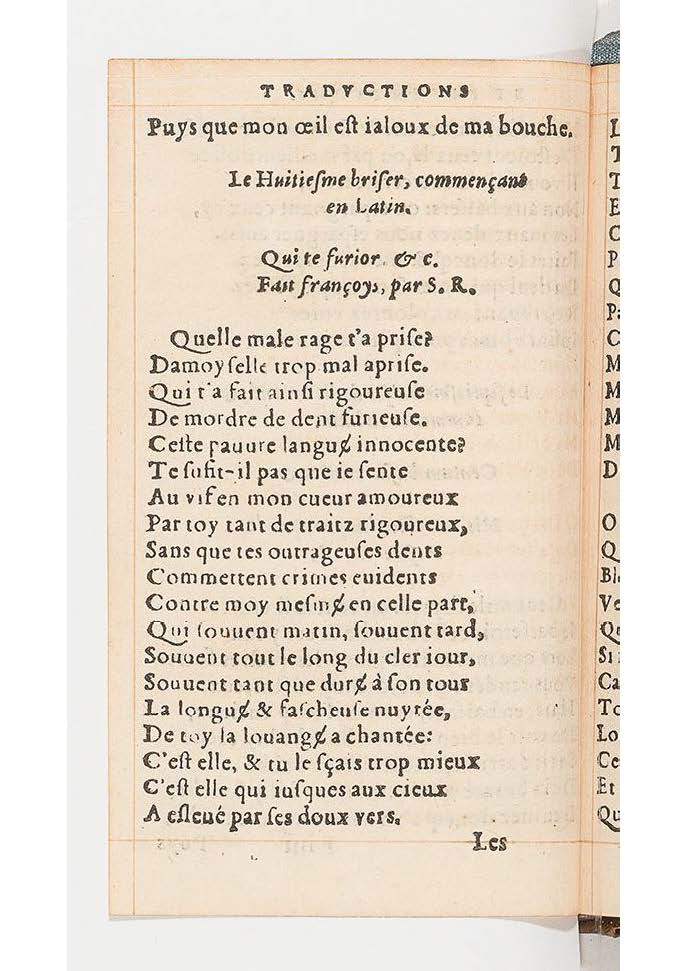 TRADVCTIONS
Puys que mon œil eſt ialoux de ma bouche.
Le Huitieſme briſer, commençant
en Latin.
Qui te furior. & c.
Fait françoys, par S. R.
Quelle male rage t'a priſe?
Damoyſelle trop mal apriſe.
Qui t'a fait ainſi rigoureuſe
De mordre de dent furieuſe.
Ceſte pauure languɇ innocente?
Te ſufit-il pas que ie ſente
Au vif en mon cueur amoureux
Par toy tant de traitz rigoureux,
Sans que tes outrageuſes dents
Commettent crimes euidents
Contre moy meſmɇ en celle part,
Qui ſouuent matin, ſouuent tard,
Souuent tout le long du cler iour,
Souuent tant que durɇ à ſon tour
La longuɇ & faſcheuſe nuytée,
De toy la louangɇ a chantée:
C'eſt elle, & tu le ſçais trop mieux
C'eſt elle qui iuſques aux cieux
A eſleué par ſes doux vers.
Les
L
T
T
E
C
P
Q
Pa
C
M
M
M
M
D
O
Q
Bl
Ve
Qu
Si
Ca
To
Lo
Ce
Et
Qu